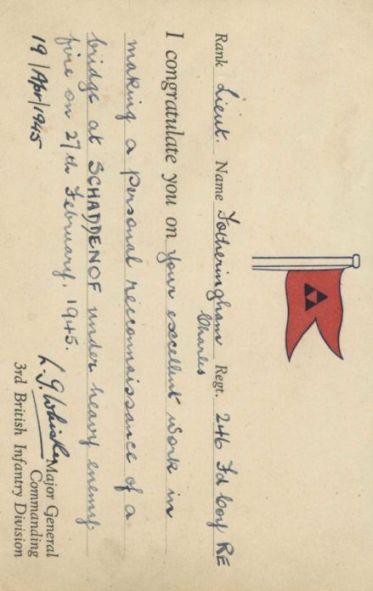 Rank Lieut. Name Fotheringham Regt. 246 Fd Coy RE
Charles
I congratulate you on your excellent work in
making a personal reconnaissance of a
bridge at SCHADDENOF under heavy enemy
fire on 27th February, 1945.
L. G. Whistler Major General
19/Apr/1945 Commanding
3rd British Infantry Division